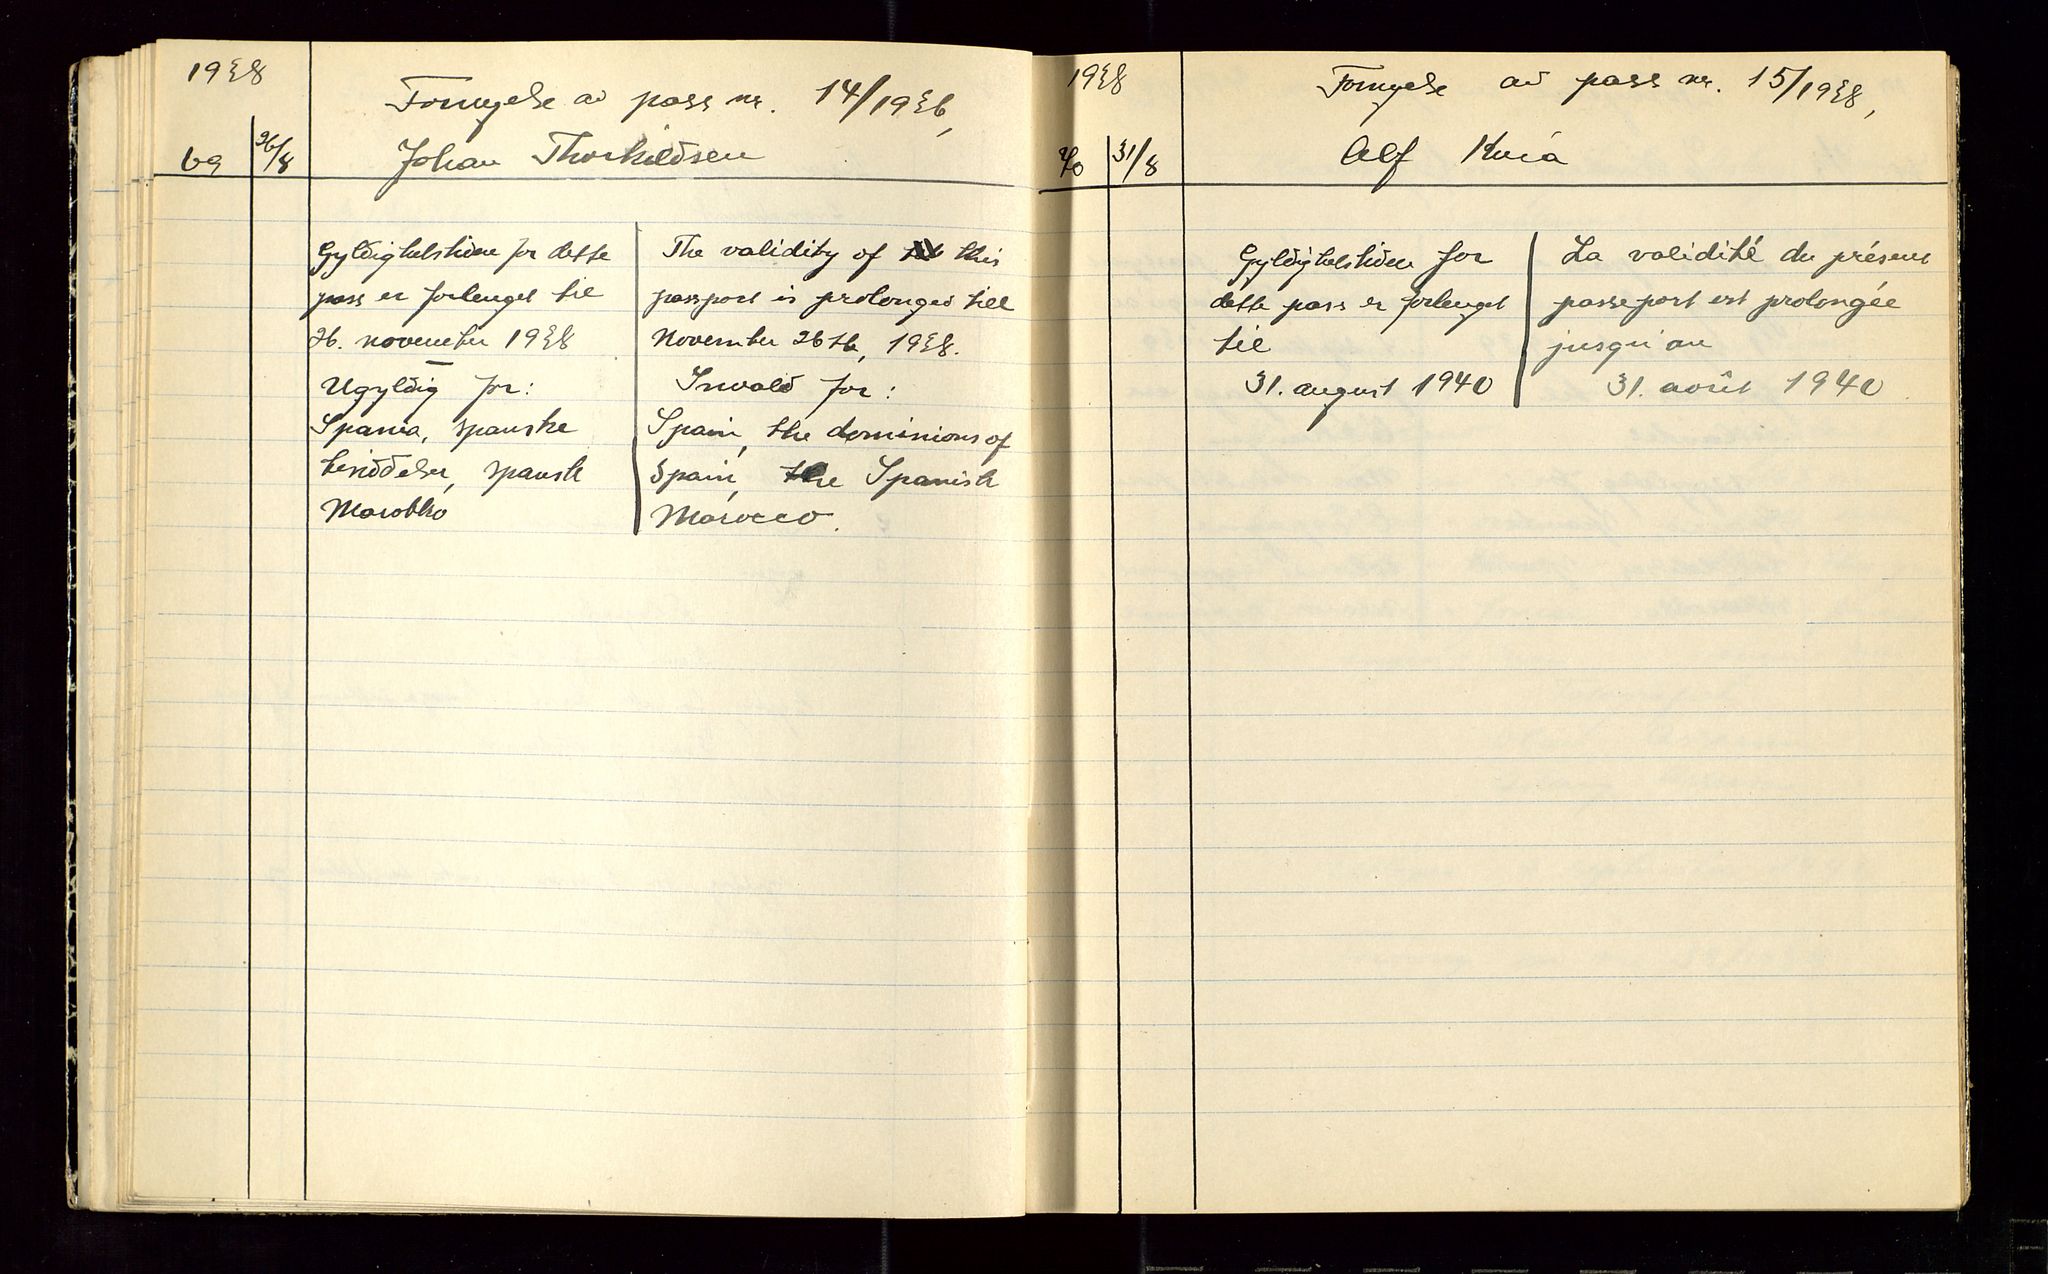 1938
Fornyelse av pass nr. 14/1936,
69 26/8 Johan Thorkildsen
Gyldighetstiden for dette
pass er forlenget til
26. november 1938
Ugyldig for:
Spania, spanske
besiddelser, spansk
Marokko
The validity of this
passport is prolonged till
November 26th, 1938.
Invalid for:
Spain, the dominions of
Spain, the Spanish
Marocco.
1938
Fornyelse av pass nr. 15/1938,
70 31/8 Alf
Gyldighetstiden for
dette pass er forlenget
til
31. august 1940
La validité du présent
passeport est prolongée
jusqu'au
31. août 1940